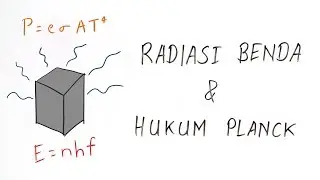 P=eσAT⁴
E=nhf
RADIASI BENDA
&
HUKUM PLANCK